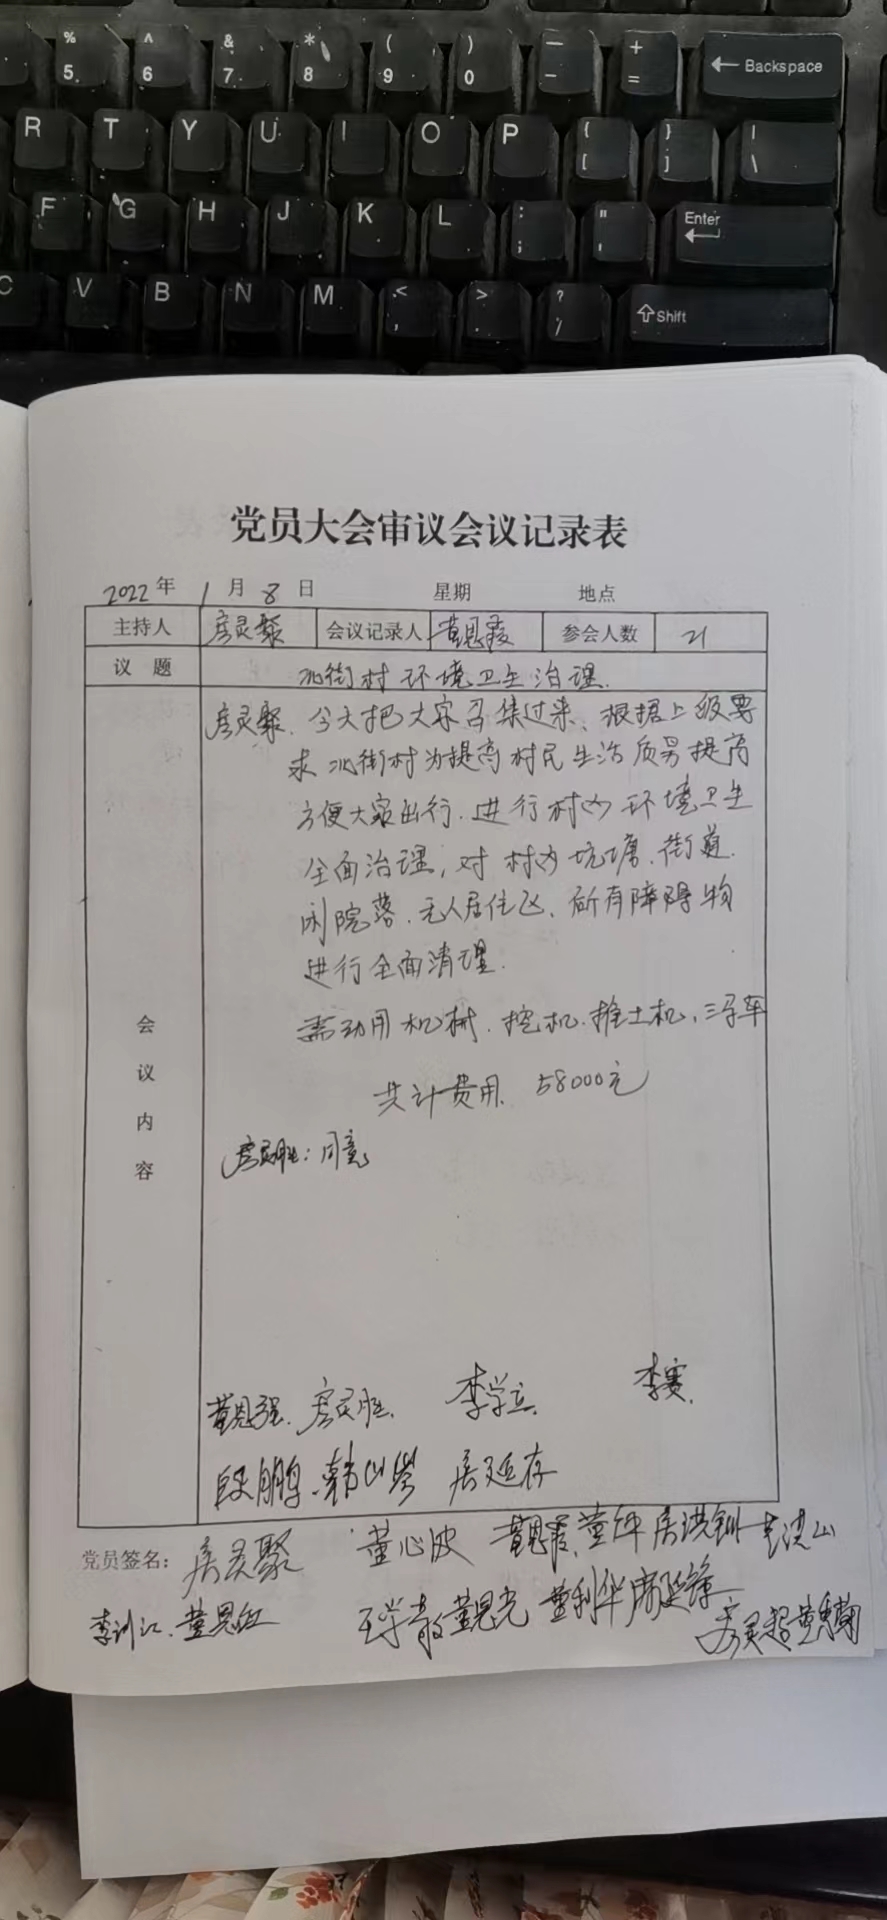 % ^ & * ( ) — +
5 6 7 8 9 0 - = ← Backspace
R T Y U I O P { } |
[ ] \
F G H J K L : " Enter
; '
C V B N M < > ? ⇧ Shift
, . /
党员大会审议会议记录表
2022年 1月 8日 星期 地点
主持人 房灵聚 会议记录人 董恩霞 参会人数 21
议 题 北街村环境卫生治理.
房灵聚. 今天把大家召集过来、根据上级要
求北街村为提高村民生活质另提高
方便大家出行. 进行村内环境卫生
全面治理, 对村内坑塘. 街道.
闲院落. 无人居住区. 所有障碍物
进行全面清理.
需动用机械. 挖机. 推土机, 三马车
共计费用. 58000元
会
议
内
容
房灵胜: 同意
董恩强. 房灵胜. 李学立. 李赛.
段朋鹏. 韩山岺 房延存
党员签名: 房灵聚 董心波 董恩霞 房洪钏
董恩红 董恩光 董利华 房延锋
房灵超